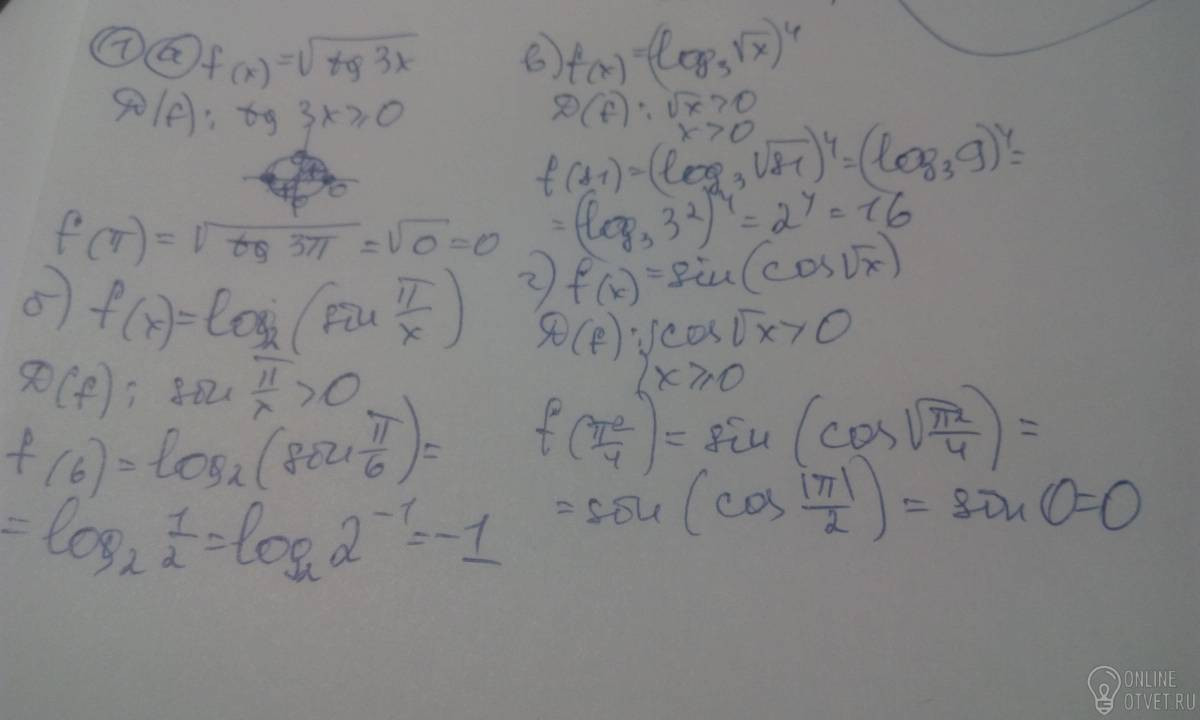 1 а f(x)=√(tg 3x)
D(f): tg 3x≥0
f(π)=√(tg 3π)=√0=0
б) f(x)=log₂(sin π/x)
D(f): sin π/x>0
f(6)=log₂(sin π/6)=
=log₂ 1/2=log₂ 2⁻¹=-1
в) f(x)=(log₃ √x)⁴
D(f): √x>0
x>0
f(81)=(log₃ √81)⁴=(log₃ 9)⁴=
=(log₃ 3²)⁴=2⁴=16
г) f(x)=sin(cos √x)
D(f): {cos √x>0
x≥0
f(π²/4)=sin(cos √(π²/4))=
=sin(cos |π|/2)=sin 0=0
ONLINE
OTVET.RU